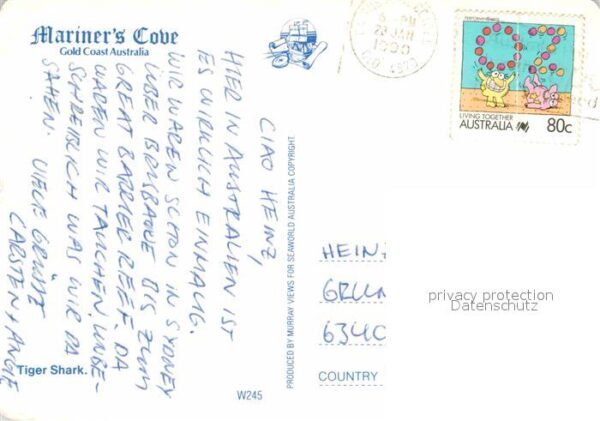 Mariner's Cove
Gold Coast Australia
CIAO HEINZ,
HIER IN AUSTRALIEN IST
ES WIRKLICH EINMALIG.
WIR WAREN SCHON IN SYDNEY
ÜBER BRISBANE BIS ZUM
GREAT BARRIER REEF. DA
WAREN WIR TAUCHEN. UNBE-
SCHREIBLICH WAS WIR DA
SAHEN. VIELE GRÜSSE
CARSTEN + ANGIE
Tiger Shark.
W245
PRODUCED BY MURRAY VIEWS FOR SEAWORLD AUSTRALIA COPYRIGHT.
6-PM
29 JAN
1990
LIVING TOGETHER
AUSTRALIA 80c
HEIN
6340
COUNTRY
privacy protection
Datenschutz